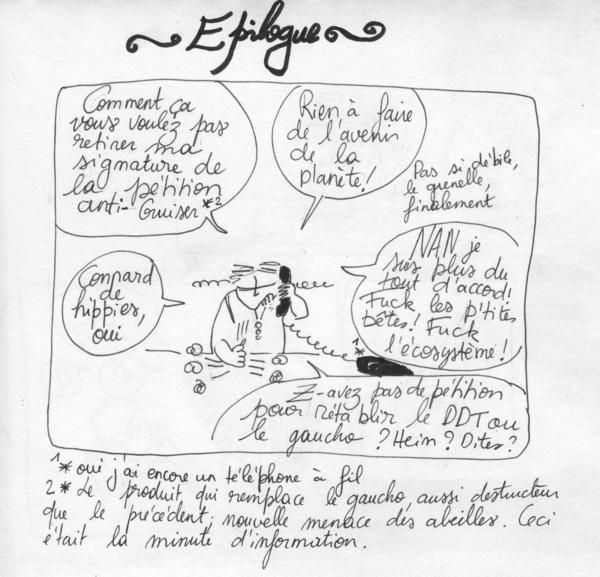 Epilogue
Comment ça
vous voulez pas
retirer ma
signature de
la pétition
anti-Cruiser *2
Rien à faire
de l'avenir
de la
planète!
Pas si débile,
le grenelle,
finalement
Connard
de
hippies,
oui
NAN je
suis plus du
tout d'accord!
Fuck les p'tites
bêtes! Fuck
l'écosystème!
1*
Z-avez pas de pétition
pour rétablir le DDT ou
le gaucho? Hein? Dites?
1* oui j'ai encore un téléphone à fil
2* Le produit qui remplace le gaucho, aussi destructeur
que le précédent; nouvelle menace des abeilles. Ceci
était la minute d'information.